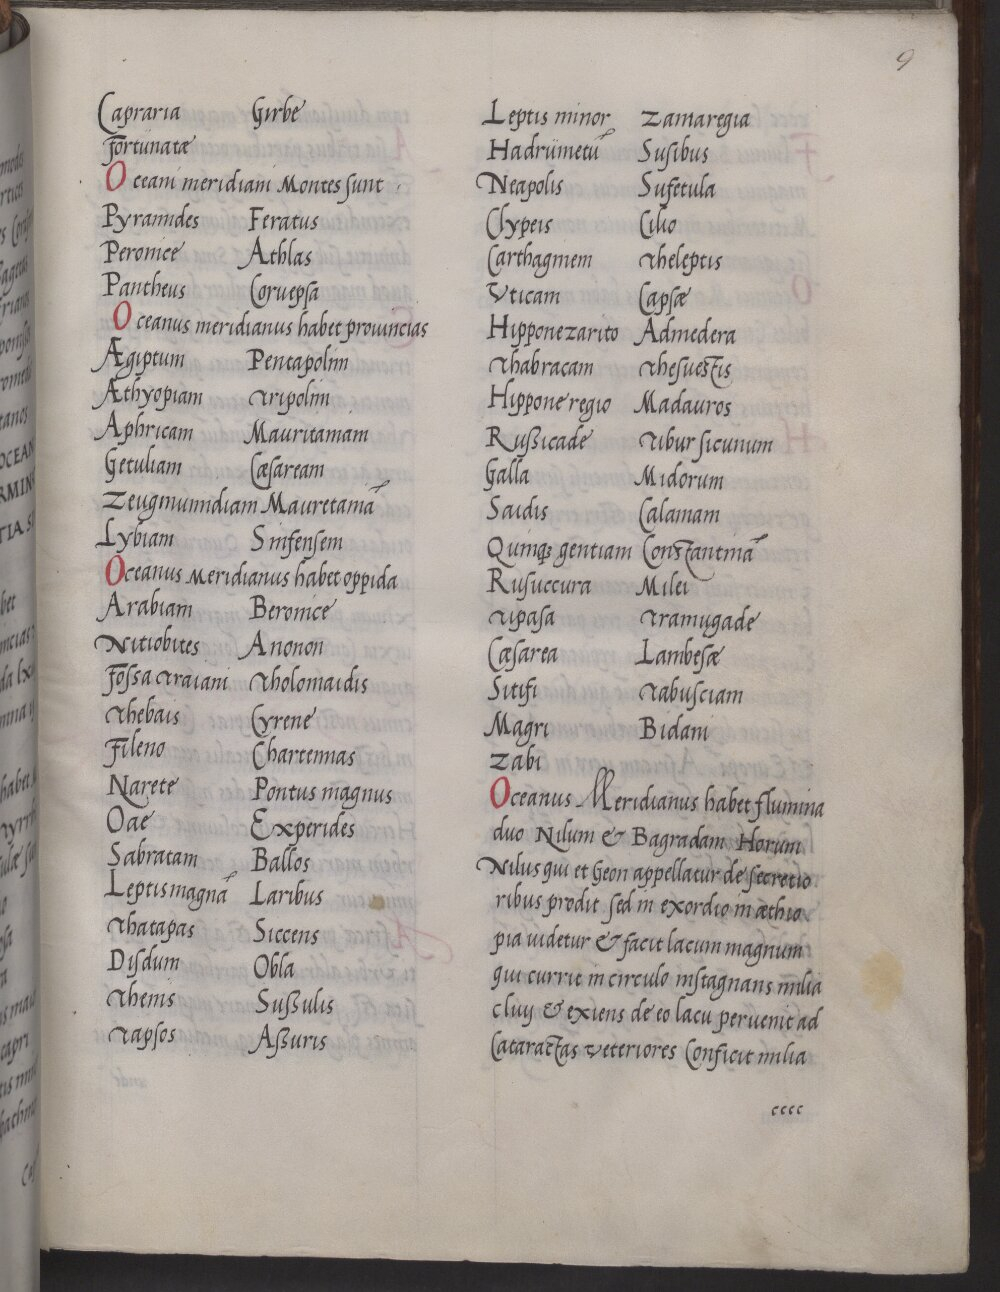 9
Capraria Girbe
Fortunatæ
Oceani meridiani Montes sunt
Pyramides Feratus
Peronice Athlas
Pantheus Coruepsa
Oceanus meridianus habet prouincias
Ægiptum Pentapolim
Æthyopiam Tripolim
Aphricam Mauritaniam
Getuliam Cæsaream
Zeugmunidiam Mauretaniā
Lybiam Sinfensem
Oceanus Meridianus habet oppida
Arabiam Beronice
Nitiobites Anonon
Fossa Traiani Tholomaidis
Thebais Cyrene
Fileno Chartennas
Narete Pontus magnus
Oae Experides
Sabratam Ballos
Leptis magnā Laribus
Thatapas Siccens
Disdum Obla
Thenis Sussulis
Tapsos Assuris
Leptis minor Zamaregia
Hadrumetū Susibus
Neapolis Sufetula
Clypeis Cilio
Carthaginem Theleptis
Vticam Capsæ
Hippone zarito Admedera
Thabracam Thesuestis
Hippone regio Madauros
Russicade Tibur sicunum
Galla Midorum
Saidis Calamam
Quinqꝫ gentiam Constantinā
Rusuccura Milei
Tipasa Tramugade
Cæsarea Lambesæ
Sitifi Tabusciam
Magri Bidani
Zabi
Oceanus Meridianus habet flumina
duo Nilum & Bagradam Horum
Nilus qui et Geon appellatur de secretio
ribus prodit sed in exordio in æthio
pia uidetur & facit lacum magnum
qui currit in circulo instagnans milia
cluij & exiens de eo lacu peruenit ad
Cataractas veteriores Conficit milia
cccc